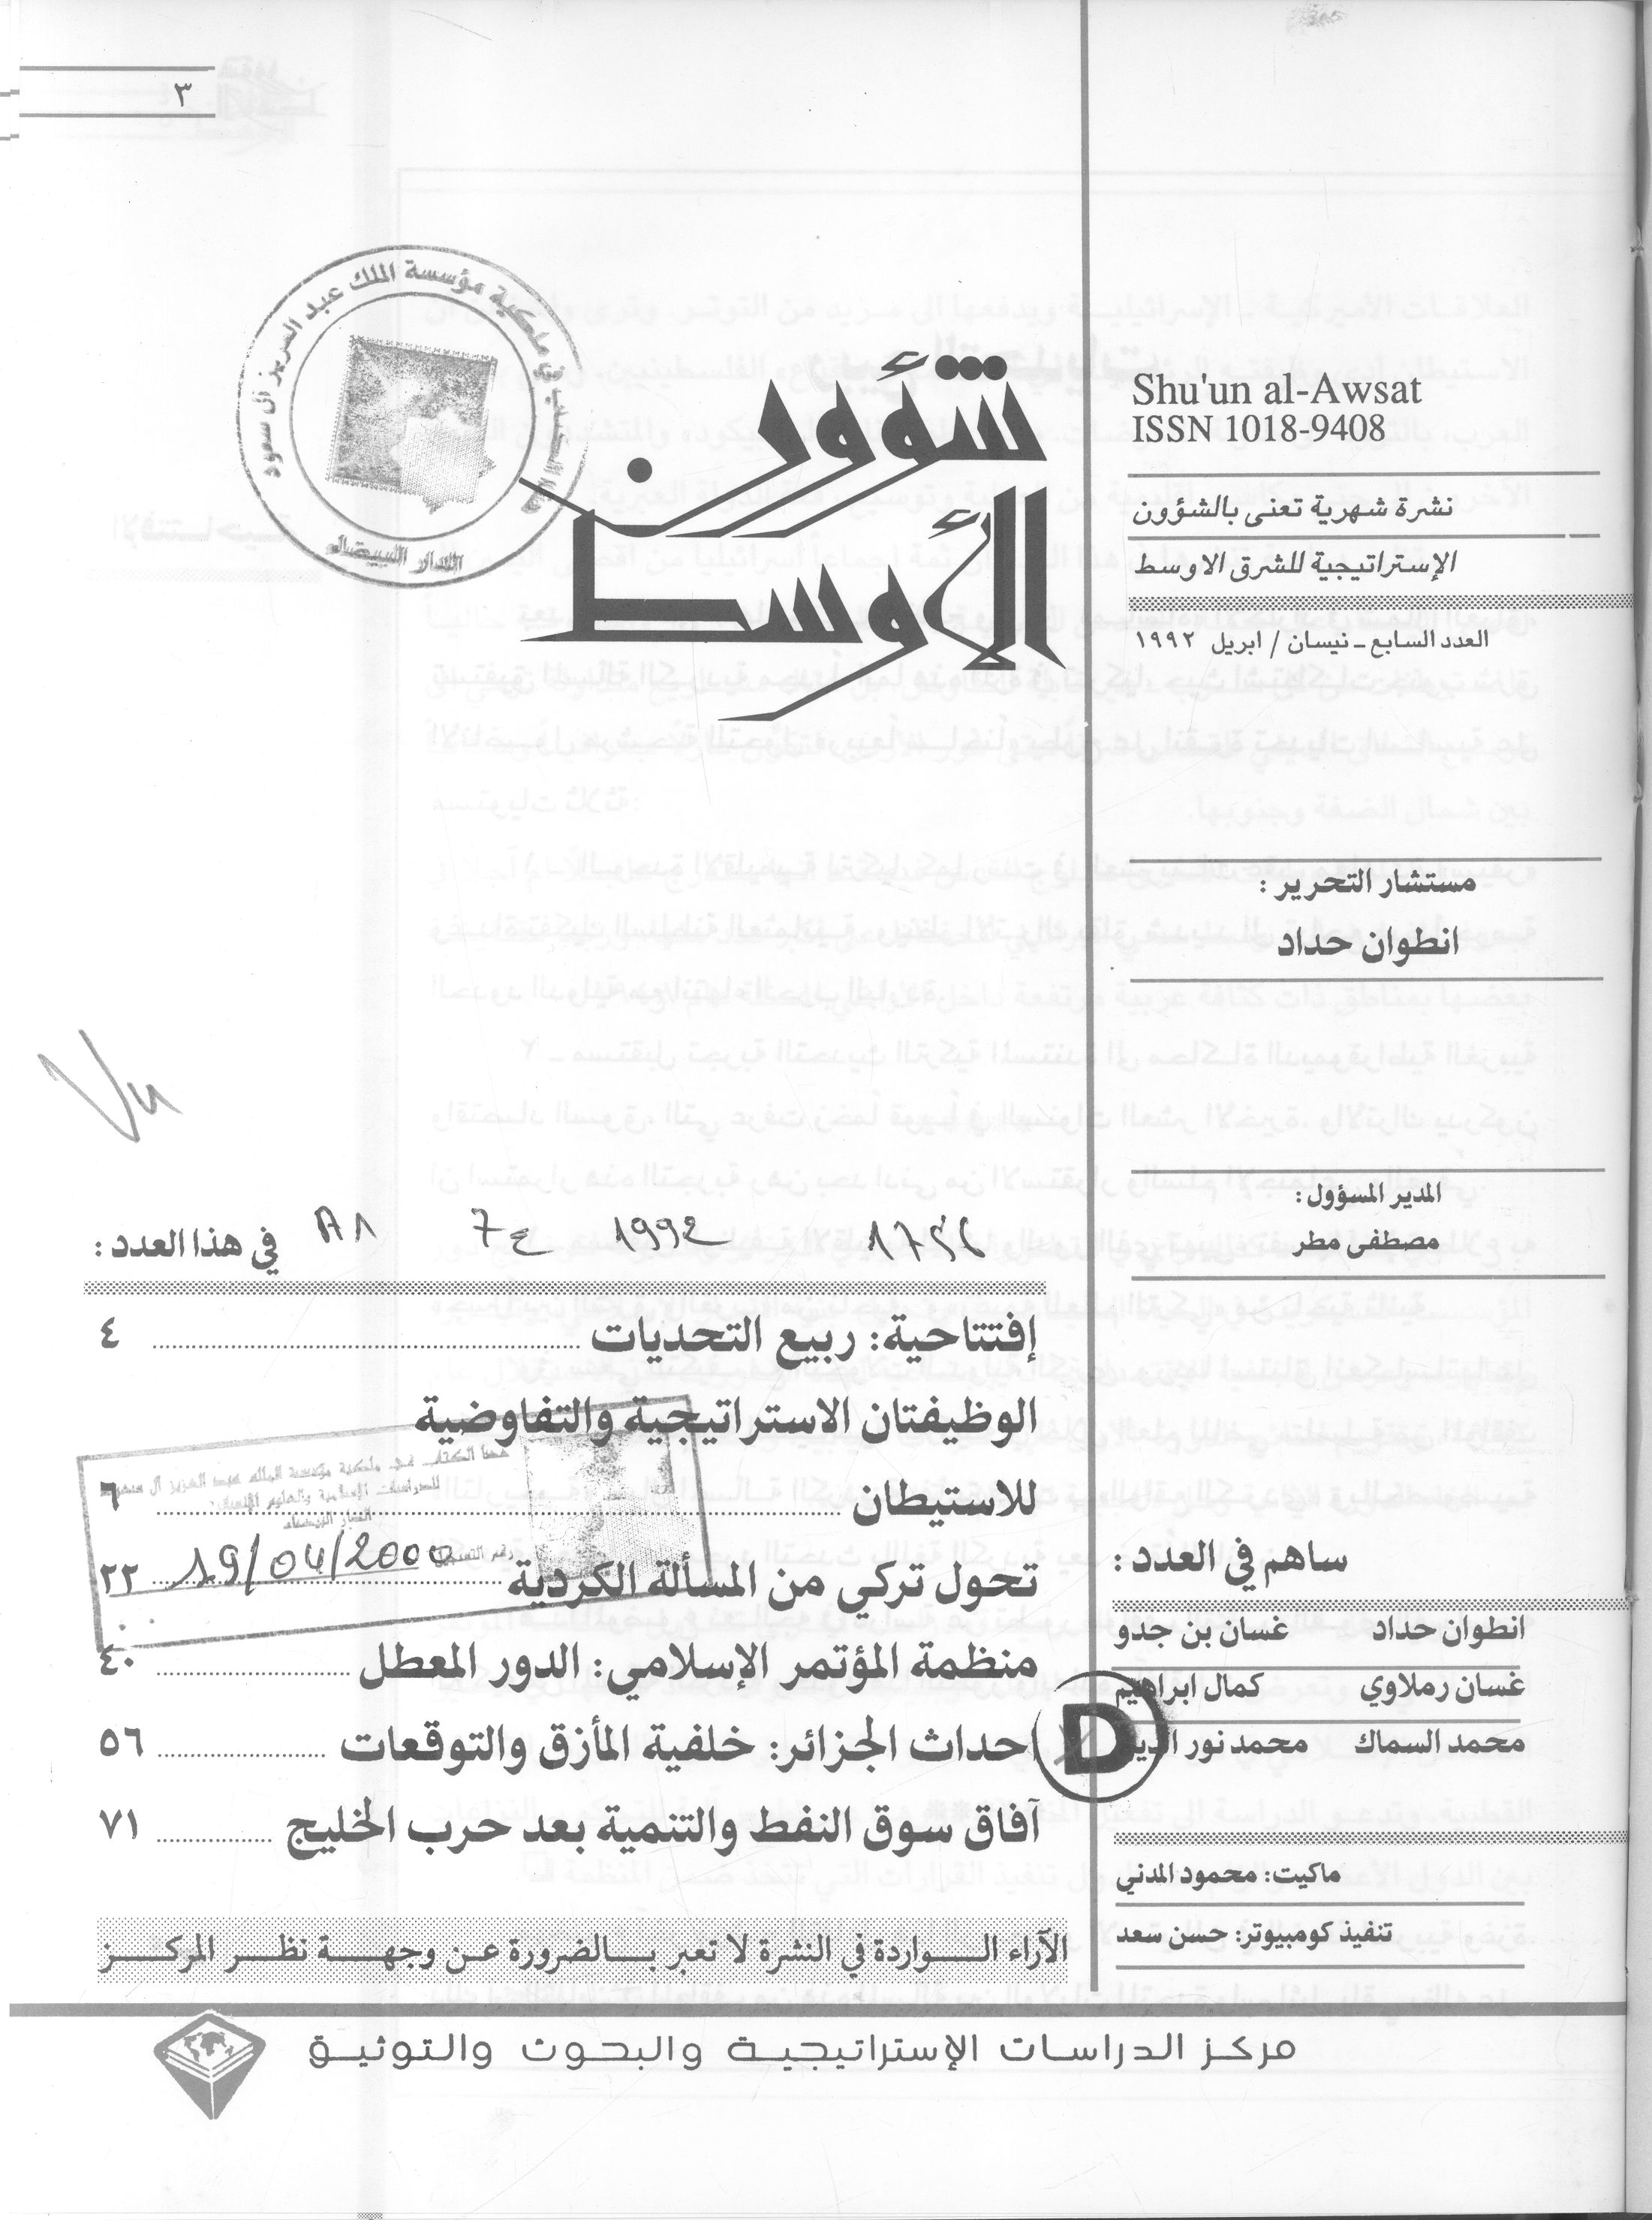 ٣
شؤون
الأوسط
Shu'un al-Awsat
ISSN 1018-9408
نشرة شهرية تعنى بالشؤون
الإستراتيجية للشرق الاوسط
العدد السابع ـ نيسان / ابريل ١٩٩٢
مستشار التحرير :
انطوان حداد
المدير المسؤول :
مصطفى مطر
ساهم في العدد :
انطوان حداد غسان بن جدو
غسان رملاوي كمال ابراهيم
محمد السماك محمد نور الدين
ماكيت: محمود المدني
تنفيذ كومبيوتر: حسن سعد
ملكية مؤسسة الملك عبد العزيز آل سعود
الدار البيضاء
1992
في هذا العدد :
إفتتاحية: ربيع التحديات ٤
الوظيفتان الاستراتيجية والتفاوضية
للاستيطان ٦
تحول تركي من المسألة الكردية ٢٢
منظمة المؤتمر الإسلامي: الدور المعطل ٤٠
احداث الجزائر: خلفية المأزق والتوقعات ٥٦
آفاق سوق النفط والتنمية بعد حرب الخليج ٧١
هذا الكتاب في ملكية مؤسسة الملك عبد العزيز آل سعود
للدراسات الإسلامية والعلوم الإنسانية
الدار البيضاء
رقم التسجيل
19/04/2000
D
الآراء الواردة في النشرة لا تعبر بالضرورة عن وجهة نظر المركز
مركز الدراسات الإستراتيجية والبحوث والتوثيق